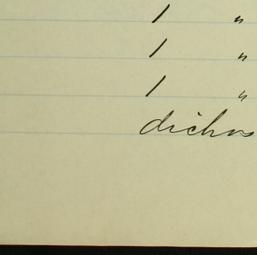 1 "
1 "
1 "
dichos